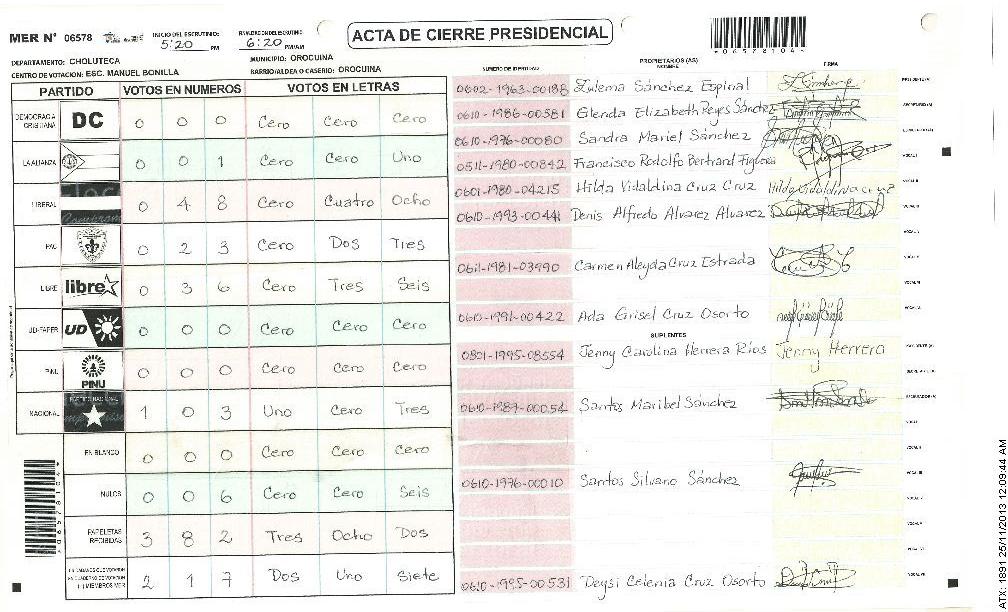 MER N° 06578
INICIO DEL ESCRUTINIO: 5:20 PM
6:20 PM/AM
ACTA DE CIERRE PRESIDENCIAL
06578104
DEPARTAMENTO: CHOLUTECA
MUNICIPIO: OROCUINA
CENTRO DE VOTACION: ESC. MANUEL BONILLA
BARRIO/ALDEA O CASERIO: OROCUINA
PARTIDO VOTOS EN NUMEROS VOTOS EN LETRAS
DEMOCRACIA CRISTIANA DC 0 0 0 Cero Cero Cero
LA ALIANZA 0 0 1 Cero Cero Uno
LIBERAL 0 4 8 Cero Cuatro Ocho
PAC 0 2 3 Cero Dos Tres
LIBRE libre 0 3 6 Cero Tres Seis
UD-FAPER UD 0 0 0 Cero Cero Cero
PINU PINU 0 0 0 Cero Cero Cero
NACIONAL PARTIDO NACIONAL 1 0 3 Uno Cero Tres
EN BLANCO 0 0 0 Cero Cero Cero
NULOS 0 0 6 Cero Cero Seis
PAPELETAS RECIBIDAS 3 8 2 Tres Ocho Dos
2 1 7 Dos Uno Siete
NUMERO DE IDENTIDAD PROPIETARIOS (AS) NOMBRE FIRMA
0602-1963-00188 Zulema Sánchez Espinal PRESIDENTE(A)
0610-1986-00581 Glenda Elizabeth Reyes Sánchez SECRETARIO(A)
0610-1976-00080 Sandra Mariel Sánchez
0511-1980-00842 Francisco Rodolfo Bertrand Figueroa VOCAL I
0601-1980-04215 Hilda Vidaldina Cruz Cruz Hilda Vidaldina cruz VOCAL II
0610-1993-00441 Denis Alfredo Alvarez Alvarez VOCAL III
0611-1981-03990 Carmen Aleyda Cruz Estrada
0610-1991-00422 Ada Grisel Cruz Osorto
SUPLENTES
0801-1995-08554 Jenny Carolina Herrera Rios Jenny Herrera
0610-1987-00054 Santos Maribel Sánchez
0610-1976-00010 Santos Silvano Sánchez
0610-1995-00531 Deysi Celenia Cruz Osorto
ATX: 1891 25/11/2013 12:09:44 AM